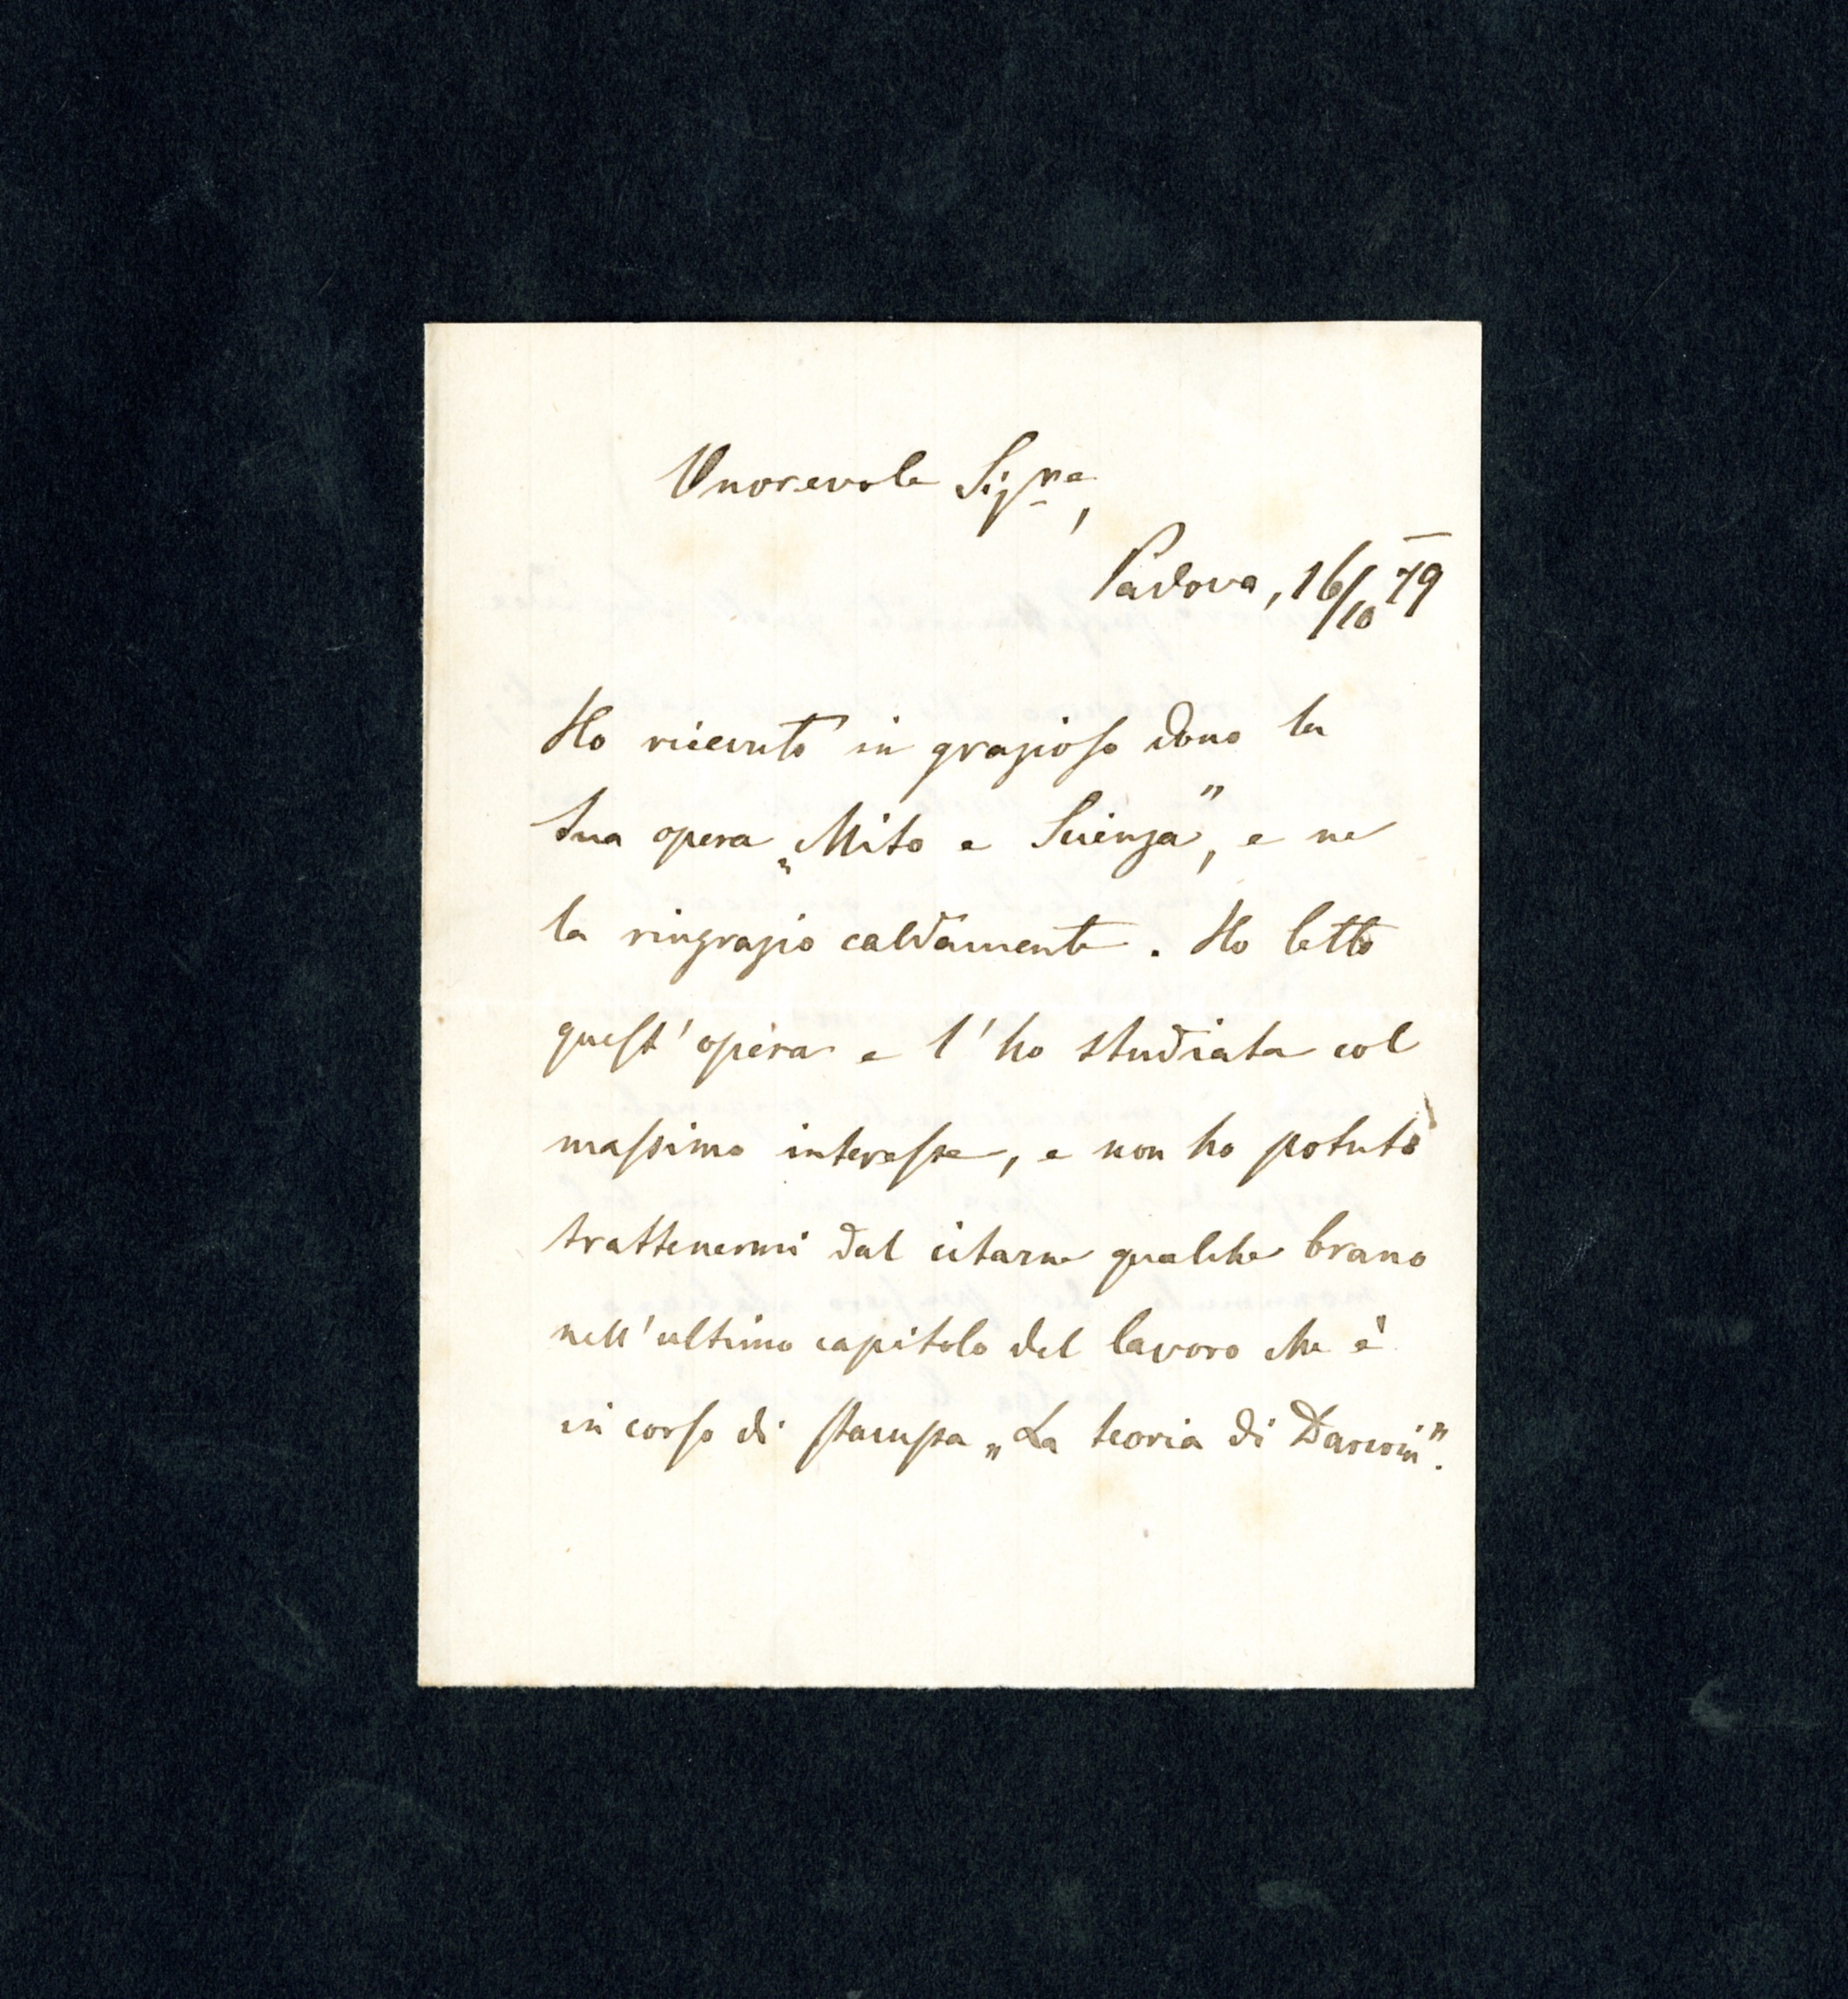 Onorevole Sigre,
Padova, 16/10 79
Ho ricevuto in grazioso dono la
sua opera „Mito e Scienza”, e ne
la ringrazio caldamente. Ho letto
quest'opera e l'ho studiata col
massimo interesse, e non ho potuto
trattenermi dal citarne qualche brano
nell'ultimo capitolo del lavoro che è
in corso di stampa „La teoria di Darwin”.